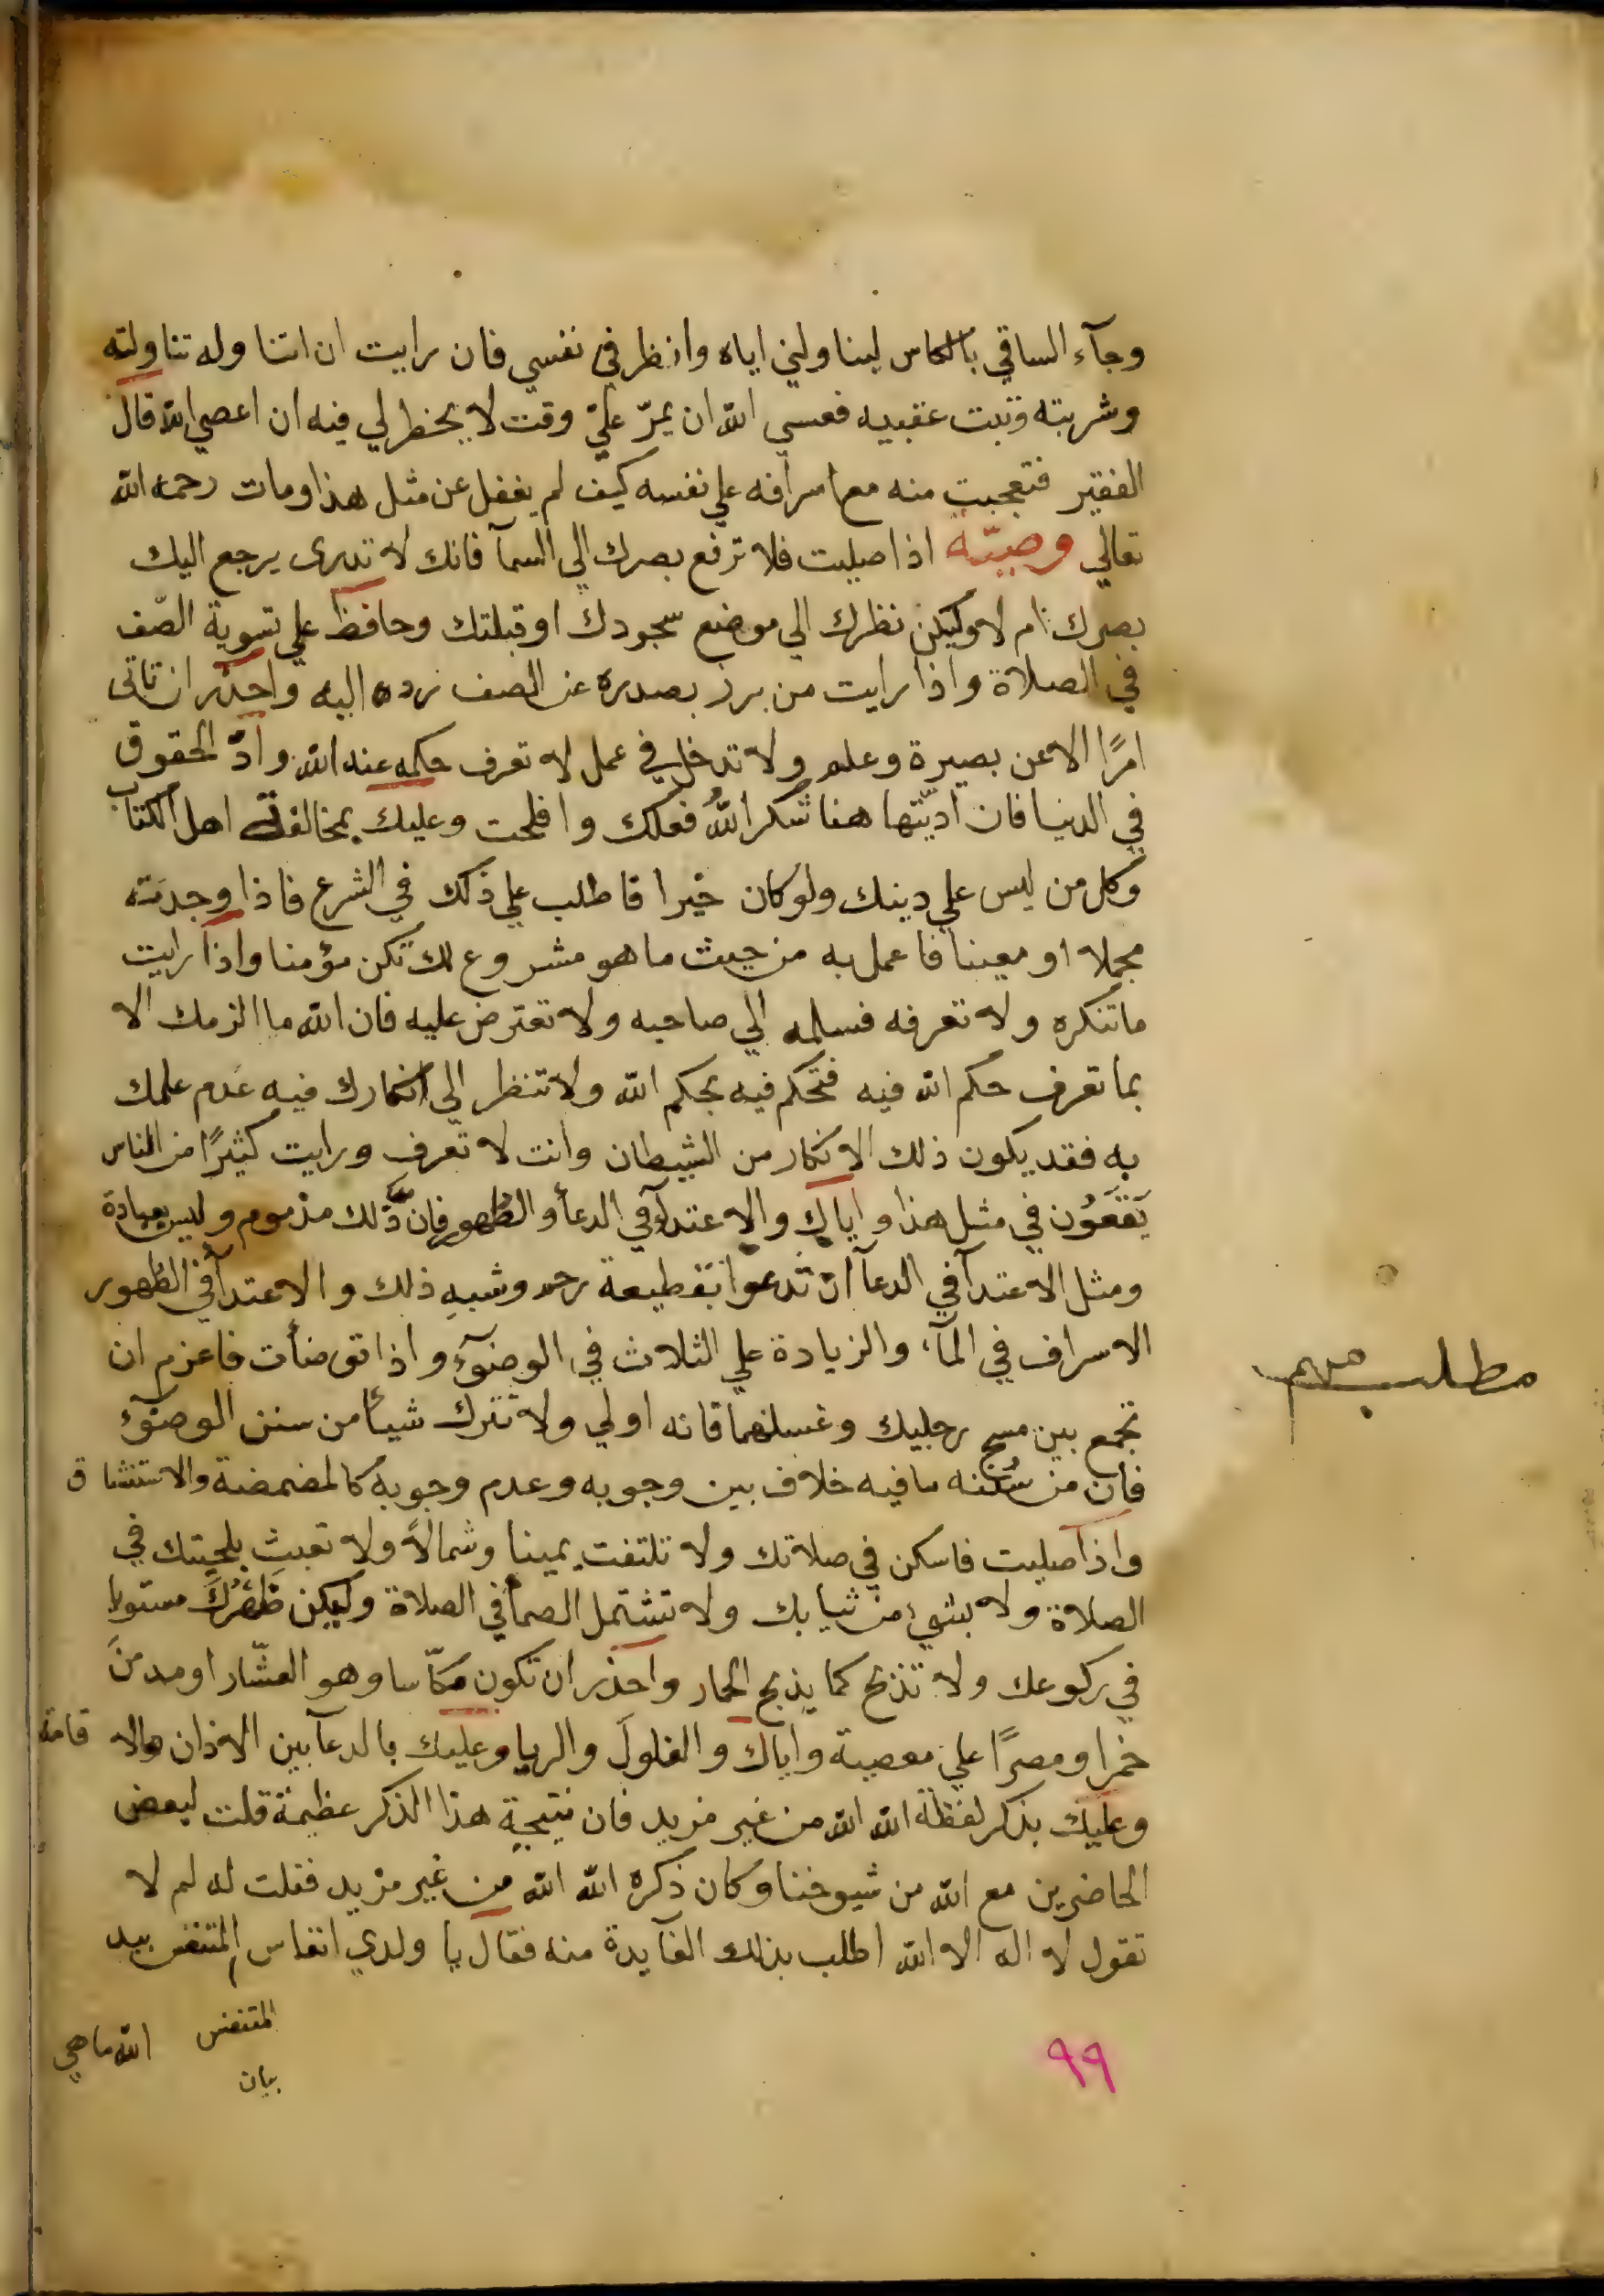 وجآء الساقي بالكاس ليناولني اياه وانظر في نفسي فان رايت ان اتناوله تناولته
وشربته وتبت عقبيه فعسي الله ان يمرّ عليّ وقت لا يخطر لي فيه ان اعصي الله قال
الفقير فتعجبت منه مع اسرافه علي نفسه كيف لم يغفل عن مثل هذا ومات رحمه الله
تعالي وصيّة اذا صليت فلا ترفع بصرك الي السمآ فانك لا تدرى يرجع اليك
بصرك ام لا وليكن نظرك الي موضع سجودك او قبلتك وحافظ علي تسوية الصّف
في الصلاة واذا رايت من برز بصدره عن الصف رده اليه واحذر ان تاتى
امرًا الا عن بصيرة وعلم ولا تدخل في عمل لا تعرف حكمه عند الله وادّ الحقوق
في الدنيا فان ادّيتها هنا شكر اللهُ فعلك وافلحت وعليك بمخالفة اهل الكتاب
وكل من ليس علي دينك ولو كان خيرا فاطلب علي ذلك في الشرع فاذا وجدته
مجملا او معينا فاعمل به من حيث ما هو مشروع لك تكن مؤمنا واذا رايت
ما تنكره ولا تعرفه فسلمه الي صاحبه ولا تعترض عليه فان الله ما الزمك الا
بما تعرف حكم الله فيه فتحكم فيه بحكم الله ولا تنظر الي انكارك فيه عَدم علمك
به فقد يكون ذلك الانكار من الشيطان وانت لا تعرف ورايت كثيرًا من الناس
يَقَعَوُن في مثل هذا واياك والاعتدآء في الدعأ والطُهور فان ذَّلك مذموم وليس بعبادة
ومثل الاعتدآ في الدعآ ان تدعوا بقطيعة رحم وشبهِ ذلك والاعتدآ في الطُهور
الاسراف في المآء والزيادة علي الثلاث في الوضوٓء واذا توضأت فاعزم ان
تجمع بين مسح رجليك وغسلهما فانه اولي ولا تترك شيأ من سنن الوضوٓء
فان من سُننه ما فيه خلاف بين وجوبه وعدم وجوبه كالمضمضة والاستنشاق
واذا صليت فاسكن في صلاتك ولا تلتفت يمينا وشمالاً ولا تعبث بلحيتك في
الصلاة ولا بشيء من ثيابك ولا تشتمل الصمأ في الصلاة وليكن ظَهْرُكَ مستويا
في ركوعك ولا تذبح كما يذبح الحمار واحذر ان تكون مكّاسا وهو العشّار او مدمنَ
خمرٍ او مصرًا علي معصية واياك والغلولَ والربا وعليك بالدعآ بين الاذان والاقامة
وعليك بذكر لفظة الله الله من غير مزيد فان نتيجة هذا الذكر عظيمة قلت لبعض
الحاضرين مع الله من شيوخنا وكان ذكره الله الله من غير مزيد فقلت له لم لا
تقول لا اله الا الله اطلب بذلك الفآيدة منه فقال يا ولدي انفاس المتنفس بيد
المتنفس
بيان
الله ما هي
٩٩
مطلب مهم